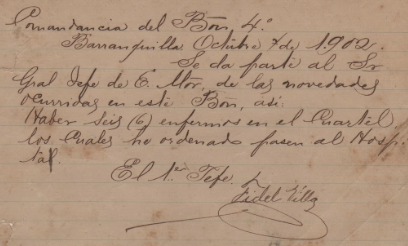 Comandancia del Bón. 4º
Barranquilla Octubre 7 de 1902.
Se da parte al Sr
Gral Jefe de E. Mor. de las novedades
ocurridas en este Bón, así:
Haber seis (6) enfermos en el Cuartel
los cuales he ordenado pasen al Hospi-
tal.
El 1er Jefe.
Fidel Villa